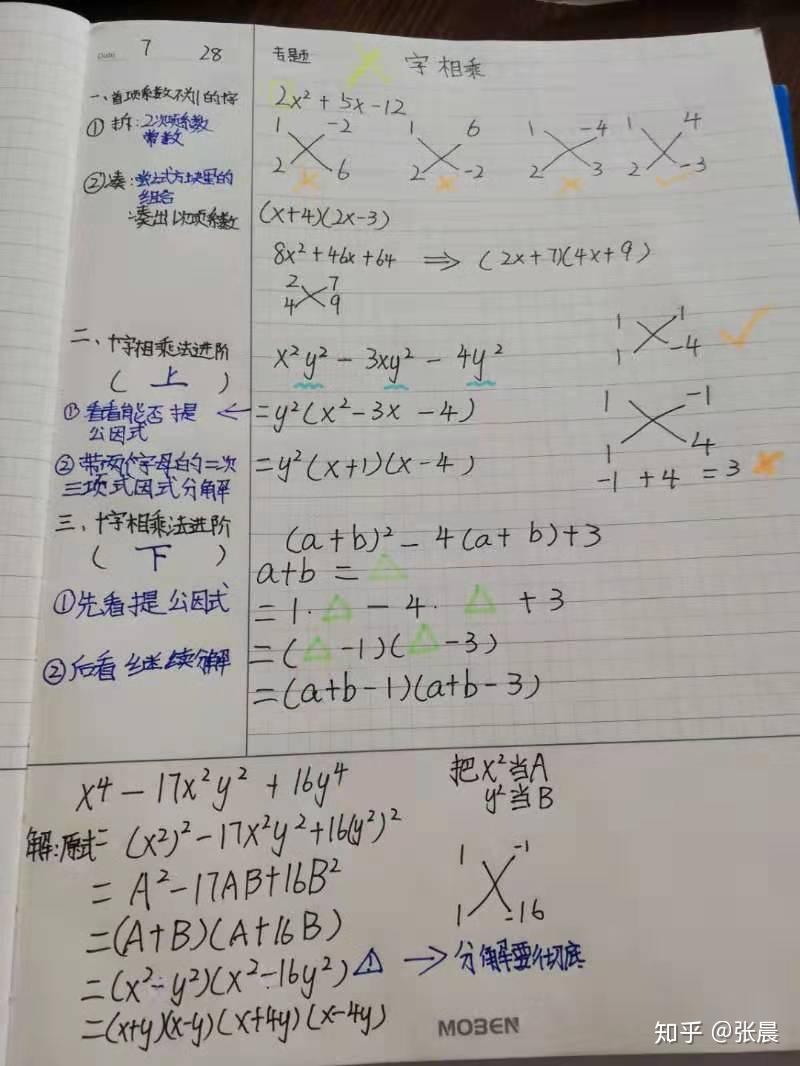 Date 7 28
专题 十字相乘
一、首项系数不为1的十字
① 拆:2次项系数
常数
② 凑:尝试方块里的
组合
凑出1次项系数
2x² + 5x - 12
1 -2 1 6 1 -4 1 4
2 6 2 -2 2 3 2 -3
(x+4)(2x-3)
8x² + 46x + 64 ⇒ (2x+7)(4x+9)
2 7
4 9
二、十字相乘法进阶
( 上 )
① 看看能否提
公因式
② 带两个字母的二次
三项式因式分解
x²y² - 3xy² - 4y²
= y²(x² - 3x - 4)
= y²(x+1)(x-4)
1 1
1 -4
1 -1
1 4
-1 + 4 = 3 ×
三、十字相乘法进阶
( 下 )
① 先看提公因式
② 后看继续分解
(a+b)² - 4(a+b)+3
a+b = △
= 1·△ - 4·△ + 3
= (△-1)(△-3)
= (a+b-1)(a+b-3)
x⁴ - 17x²y² + 16y⁴
解:原式= (x²)² - 17x²y² + 16(y²)²
= A² - 17AB + 16B²
= (A+B)(A+16B)
= (x²-y²)(x²-16y²) → 分解要彻底
= (x+y)(x-y)(x+4y)(x-4y)
把x²当A
y²当B
1 -1
1 -16
MOBEN
知乎 @张晨